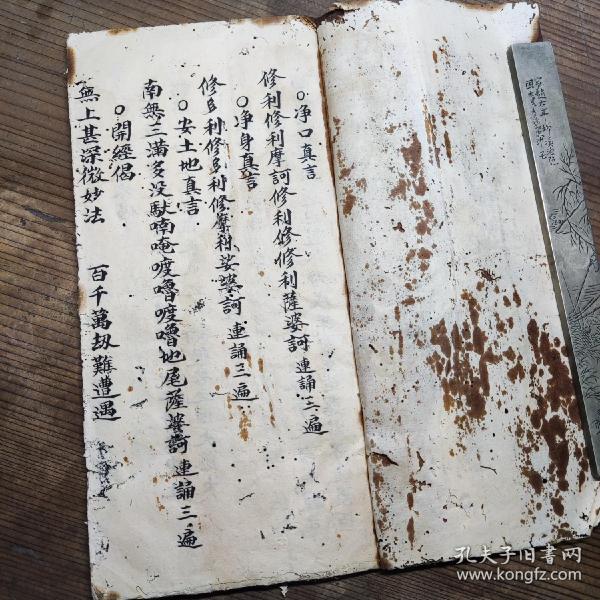 ○净口真言
修利修利摩訶修利修修利薩婆訶 連誦三遍
○净身真言
修多利修多利修摩利娑婆訶 連誦三遍
○安土地真言
南無三滿多没馱喃唵噳嚕噳嚕地尾薩婆訶 連誦三遍
○開經偈
無上甚深微妙法 百千萬劫難遭遇
孔夫子旧書网
www.kongfz.com